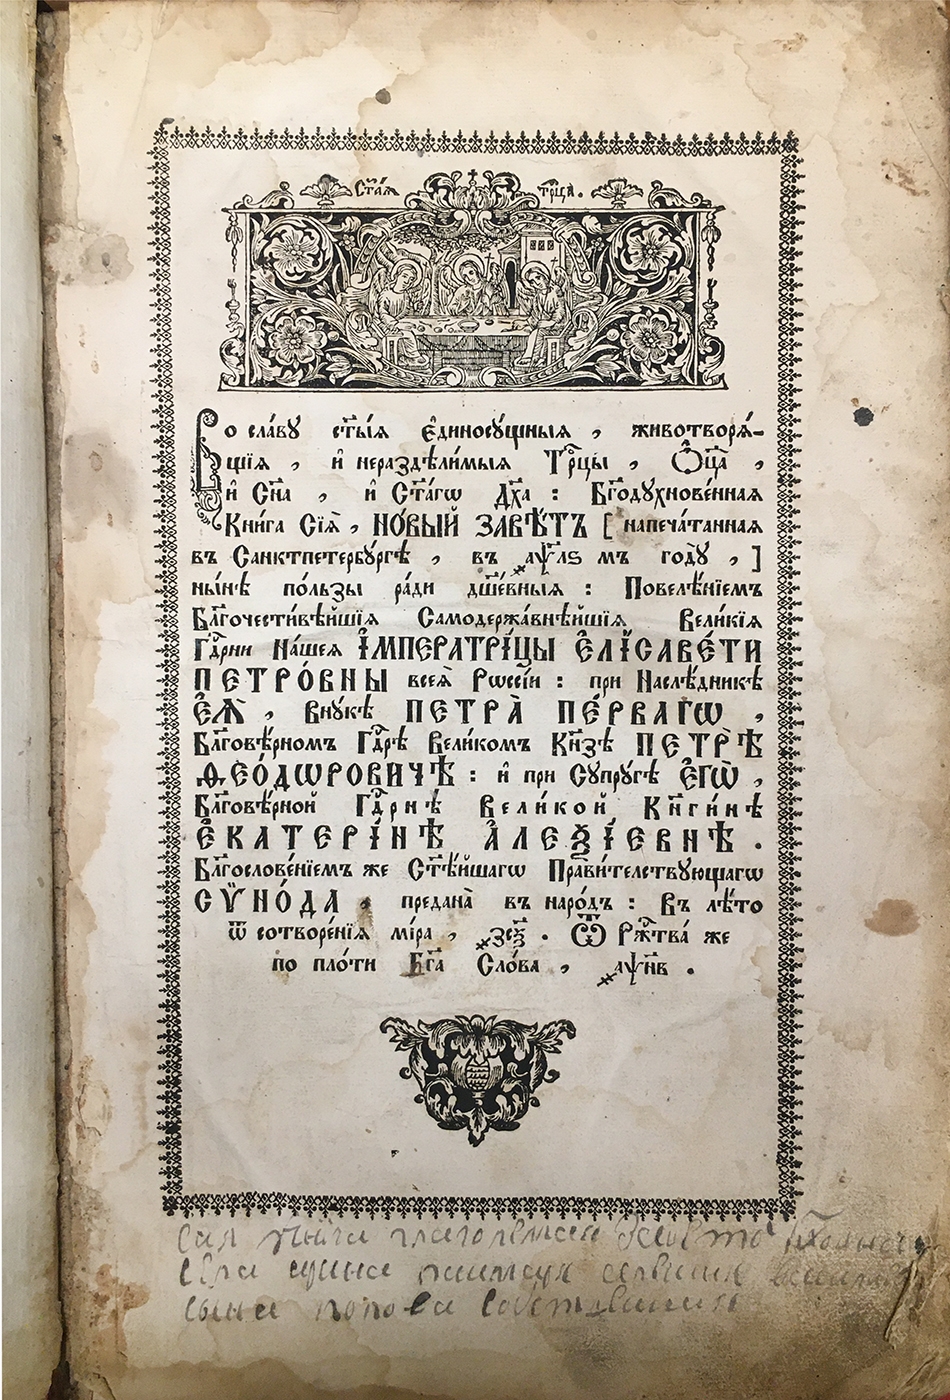 Ст҃а́ѧ Трⷪ҇ца.
Во сла́вꙋ ст҃ы́ѧ є҆диносꙋ́щныѧ , животворѧ́-
щїѧ , и҆ нераздѣли́мыѧ Трⷪ҇цы , Ѻ҆ц҃а̀ ,
и҆ Сн҃а , и҆ Ст҃а́гѡ Дх҃а : Бг҃одꙋхнове́ннаѧ
Кни́га Сїѧ̀ , НО́ВЫЙ ЗАВѢ́ТЪ [ напеча́таннаѧ
въ Санктпетербꙋ́ргѣ , въ ҂аѱл҃ѕ мъ годꙋ̀ , ]
ны́нѣ по́льзы ра́ди дш҃е́вныѧ : Повелѣ́нїемъ
Бл҃гочести́вѣйшїѧ Самодержа́внѣйшїѧ Вели́кїѧ
Гд҃рни На́шеѧ І҆МПЕРАТРИ́ЦЫ Є҆ЛІСАВЕ́ТИ
ПЕТРО́ВНЫ всеѧ̀ Рѡссі́и : при Наслѣ́дникѣ
Є҆Ѧ̀ , Внꙋ́кѣ ПЕТРА̀ ПЕ́РВАГѠ ,
Бл҃говѣ́рномъ Гд҃рѣ Вели́комъ Кн҃зѣ ПЕТРѢ̀
Ѳ҆ЕО́ДѠРОВИЧѢ : и҆ при Сꙋпрꙋ́гѣ Є҆ГѠ̀ ,
Бл҃говѣ́рной Гд҃рнѣ Вели́кой Кн҃ги́нѣ
Є҆КАТЕРІ́НѢ А҆ЛЕѮІ́ЕВНѢ .
Бл҃гослове́нїемъ же Ст҃ѣ́йшагѡ Прави́телствꙋющагѡ
СѴНО́ДА , предана̀ въ наро́дъ : Въ лѣ́то
ѿ сотворе́нїѧ мі́ра , ҂зсѯ҃ . Ѿ Ржⷭ҇тва́ же
по пло́ти Бг҃а Сло́ва , ҂аѱн҃в .